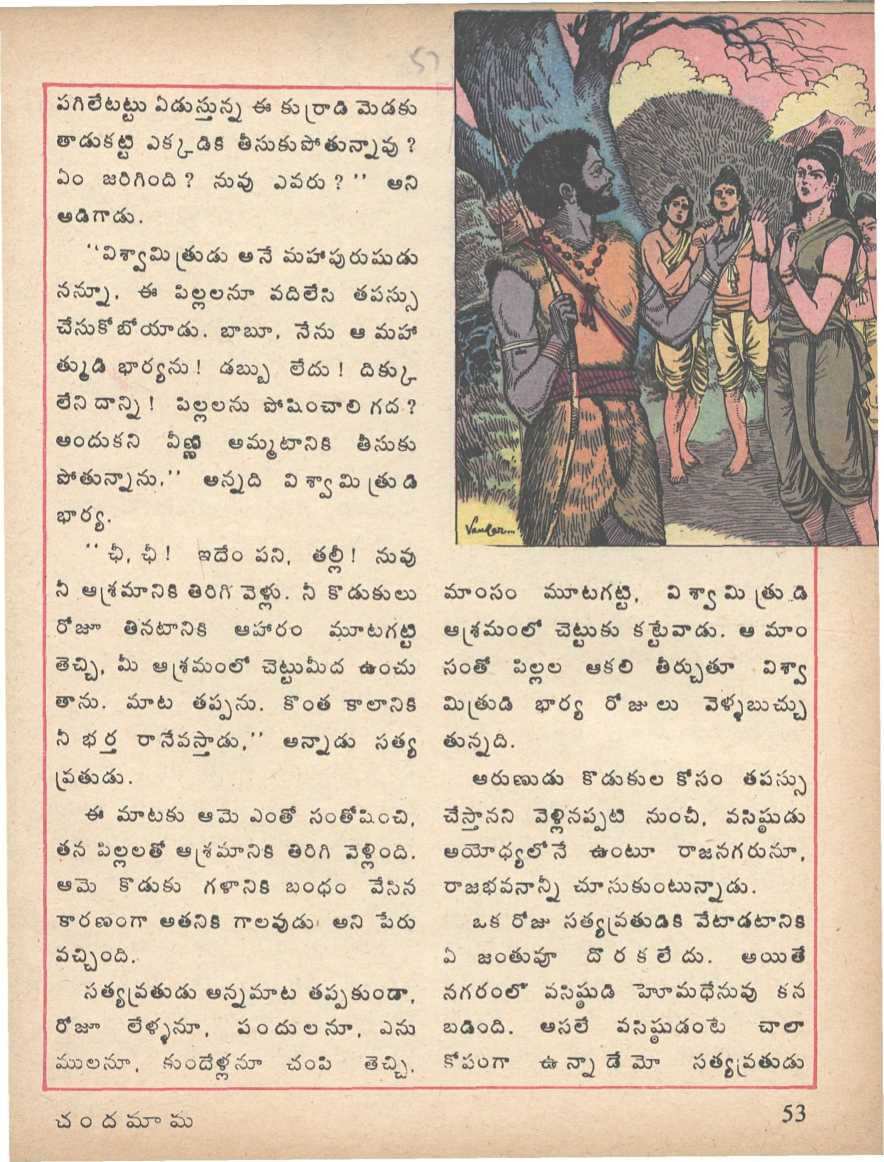 57
పగిలేటట్టు ఏడుస్తున్న ఈ కుర్రాడి మెడకు
తాడుకట్టి ఎక్కడికి తీసుకుపోతున్నావు ?
ఏం జరిగింది ? నువు ఎవరు ?'' అని
అడిగాడు.
''విశ్వామిత్రుడు అనే మహాపురుషుడు
నన్నూ, ఈ పిల్లలనూ వదిలేసి తపస్సు
చేసుకోబోయాడు. బాబూ, నేను ఆ మహా
త్ముడి భార్యను ! డబ్బు లేదు ! దిక్కు
లేనిదాన్ని ! పిల్లలను పోషించాలి గద ?
అందుకని వీణ్ణి అమ్మటానికి తీసుకు
పోతున్నాను.'' అన్నది విశ్వామిత్రుడి
భార్య.
'' ఛీ, ఛీ ! ఇదేం పని, తల్లీ ! నువు
నీ ఆశ్రమానికి తిరిగి వెళ్లు. నీ కొడుకులు
రోజూ తినటానికి ఆహారం మూటగట్టి
తెచ్చి, మీ ఆశ్రమంలో చెట్టుమీద ఉంచు
తాను. మాట తప్పను. కొంత కాలానికి
నీ భర్త రానేవస్తాడు,'' అన్నాడు సత్య
వ్రతుడు.
ఈ మాటకు ఆమె ఎంతో సంతోషించి,
తన పిల్లలతో ఆశ్రమానికి తిరిగి వెళ్లింది.
ఆమె కొడుకు గళానికి బంధం వేసిన
కారణంగా అతనికి గాలవుడు అని పేరు
వచ్చింది.
సత్యవ్రతుడు అన్నమాట తప్పకుండా,
రోజూ లేళ్ళనూ, పందులనూ, ఎను
ములనూ, కుందేళ్లనూ చంపి తెచ్చి,
Vankar...
మాంసం మూటగట్టి, విశ్వామిత్రుడి
ఆశ్రమంలో చెట్టుకు కట్టేవాడు. ఆ మాం
సంతో పిల్లల ఆకలి తీర్చుతూ విశ్వా
మిత్రుడి భార్య రోజులు వెళ్ళబుచ్చు
తున్నది.
అరుణుడు కొడుకుల కోసం తపస్సు
చేస్తానని వెళ్లినప్పటి నుంచీ, వసిష్ఠుడు
అయోధ్యలోనే ఉంటూ రాజనగరునూ,
రాజభవనాన్నీ చూసుకుంటున్నాడు.
ఒక రోజు సత్యవ్రతుడికి వేటాడటానికి
ఏ జంతువూ దొరకలేదు. అయితే
నగరంలో వసిష్ఠుడి హెూమధేనువు కన
బడింది. అసలే వసిష్ఠుడంటే చాలా
కోపంగా ఉన్నాడేమో సత్యవ్రతుడు
చందమామ
53